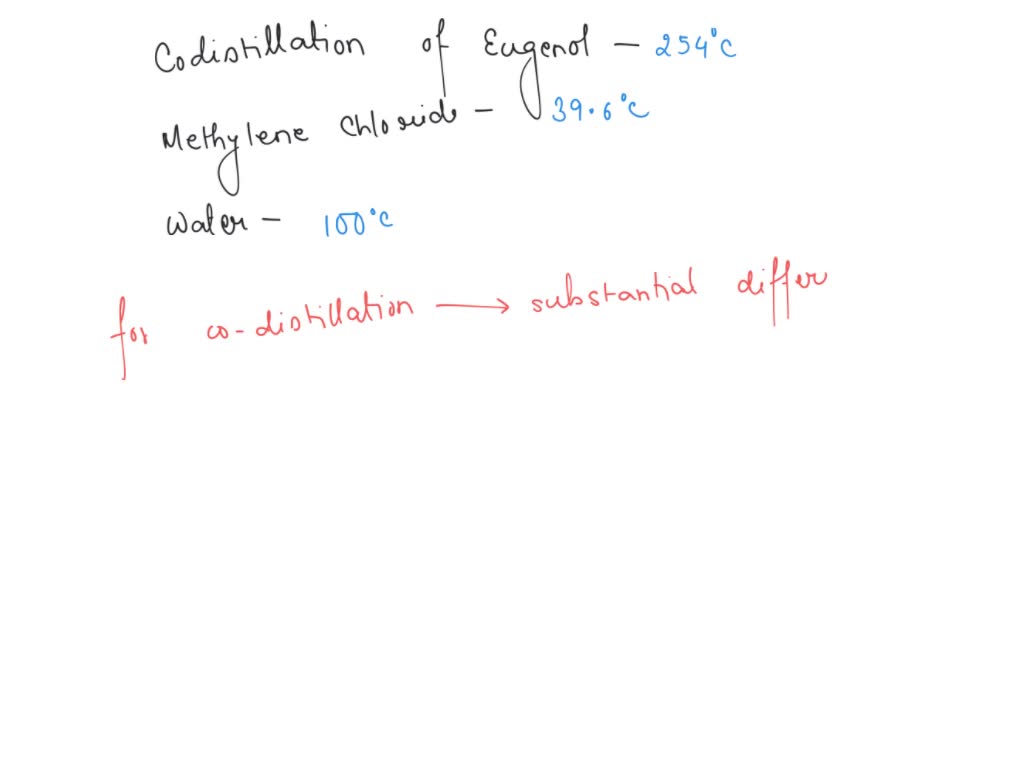 Codistillation of Eugenol - 254°C
Methylene Chloride - 39.6°C
Water - 100°C
for co-distillation → substantial differ